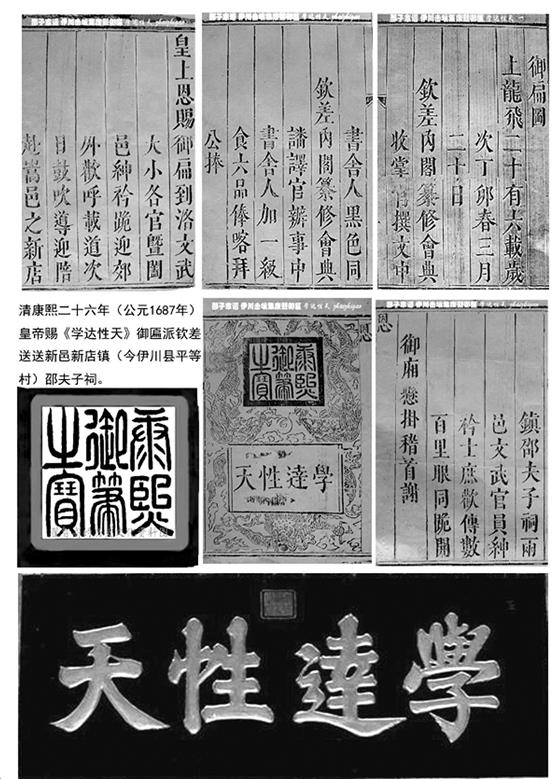 御扁圖
上龍飛二十有六載歲
次丁卯春三月
二十日
欽差內閣纂修會典
收掌官撰文中
書舍人黑色同
欽差內閣纂修會典
譒譯官辦事中
書舍人加一級
食六品俸喀拜
公捧
皇上恩賜御扁到洛文武
大小各官曁闔
邑紳衿跪迎郊
外歡呼載道次
日鼓吹導迎陪
赴嵩邑之新店
鎮邵夫子祠兩
邑文武官員紳
衿士庶歡傳數
百里眼同跪開
御廂懸掛稽首謝
恩
恩
康熙
御筆
之寶
學達性天
清康熙二十六年（公元1687年）
皇帝赐《学达性天》御匾派钦差
送送新邑新店镇（今伊川县平等
村）邵夫子祠。
康熙
御筆
之寶
學達性天